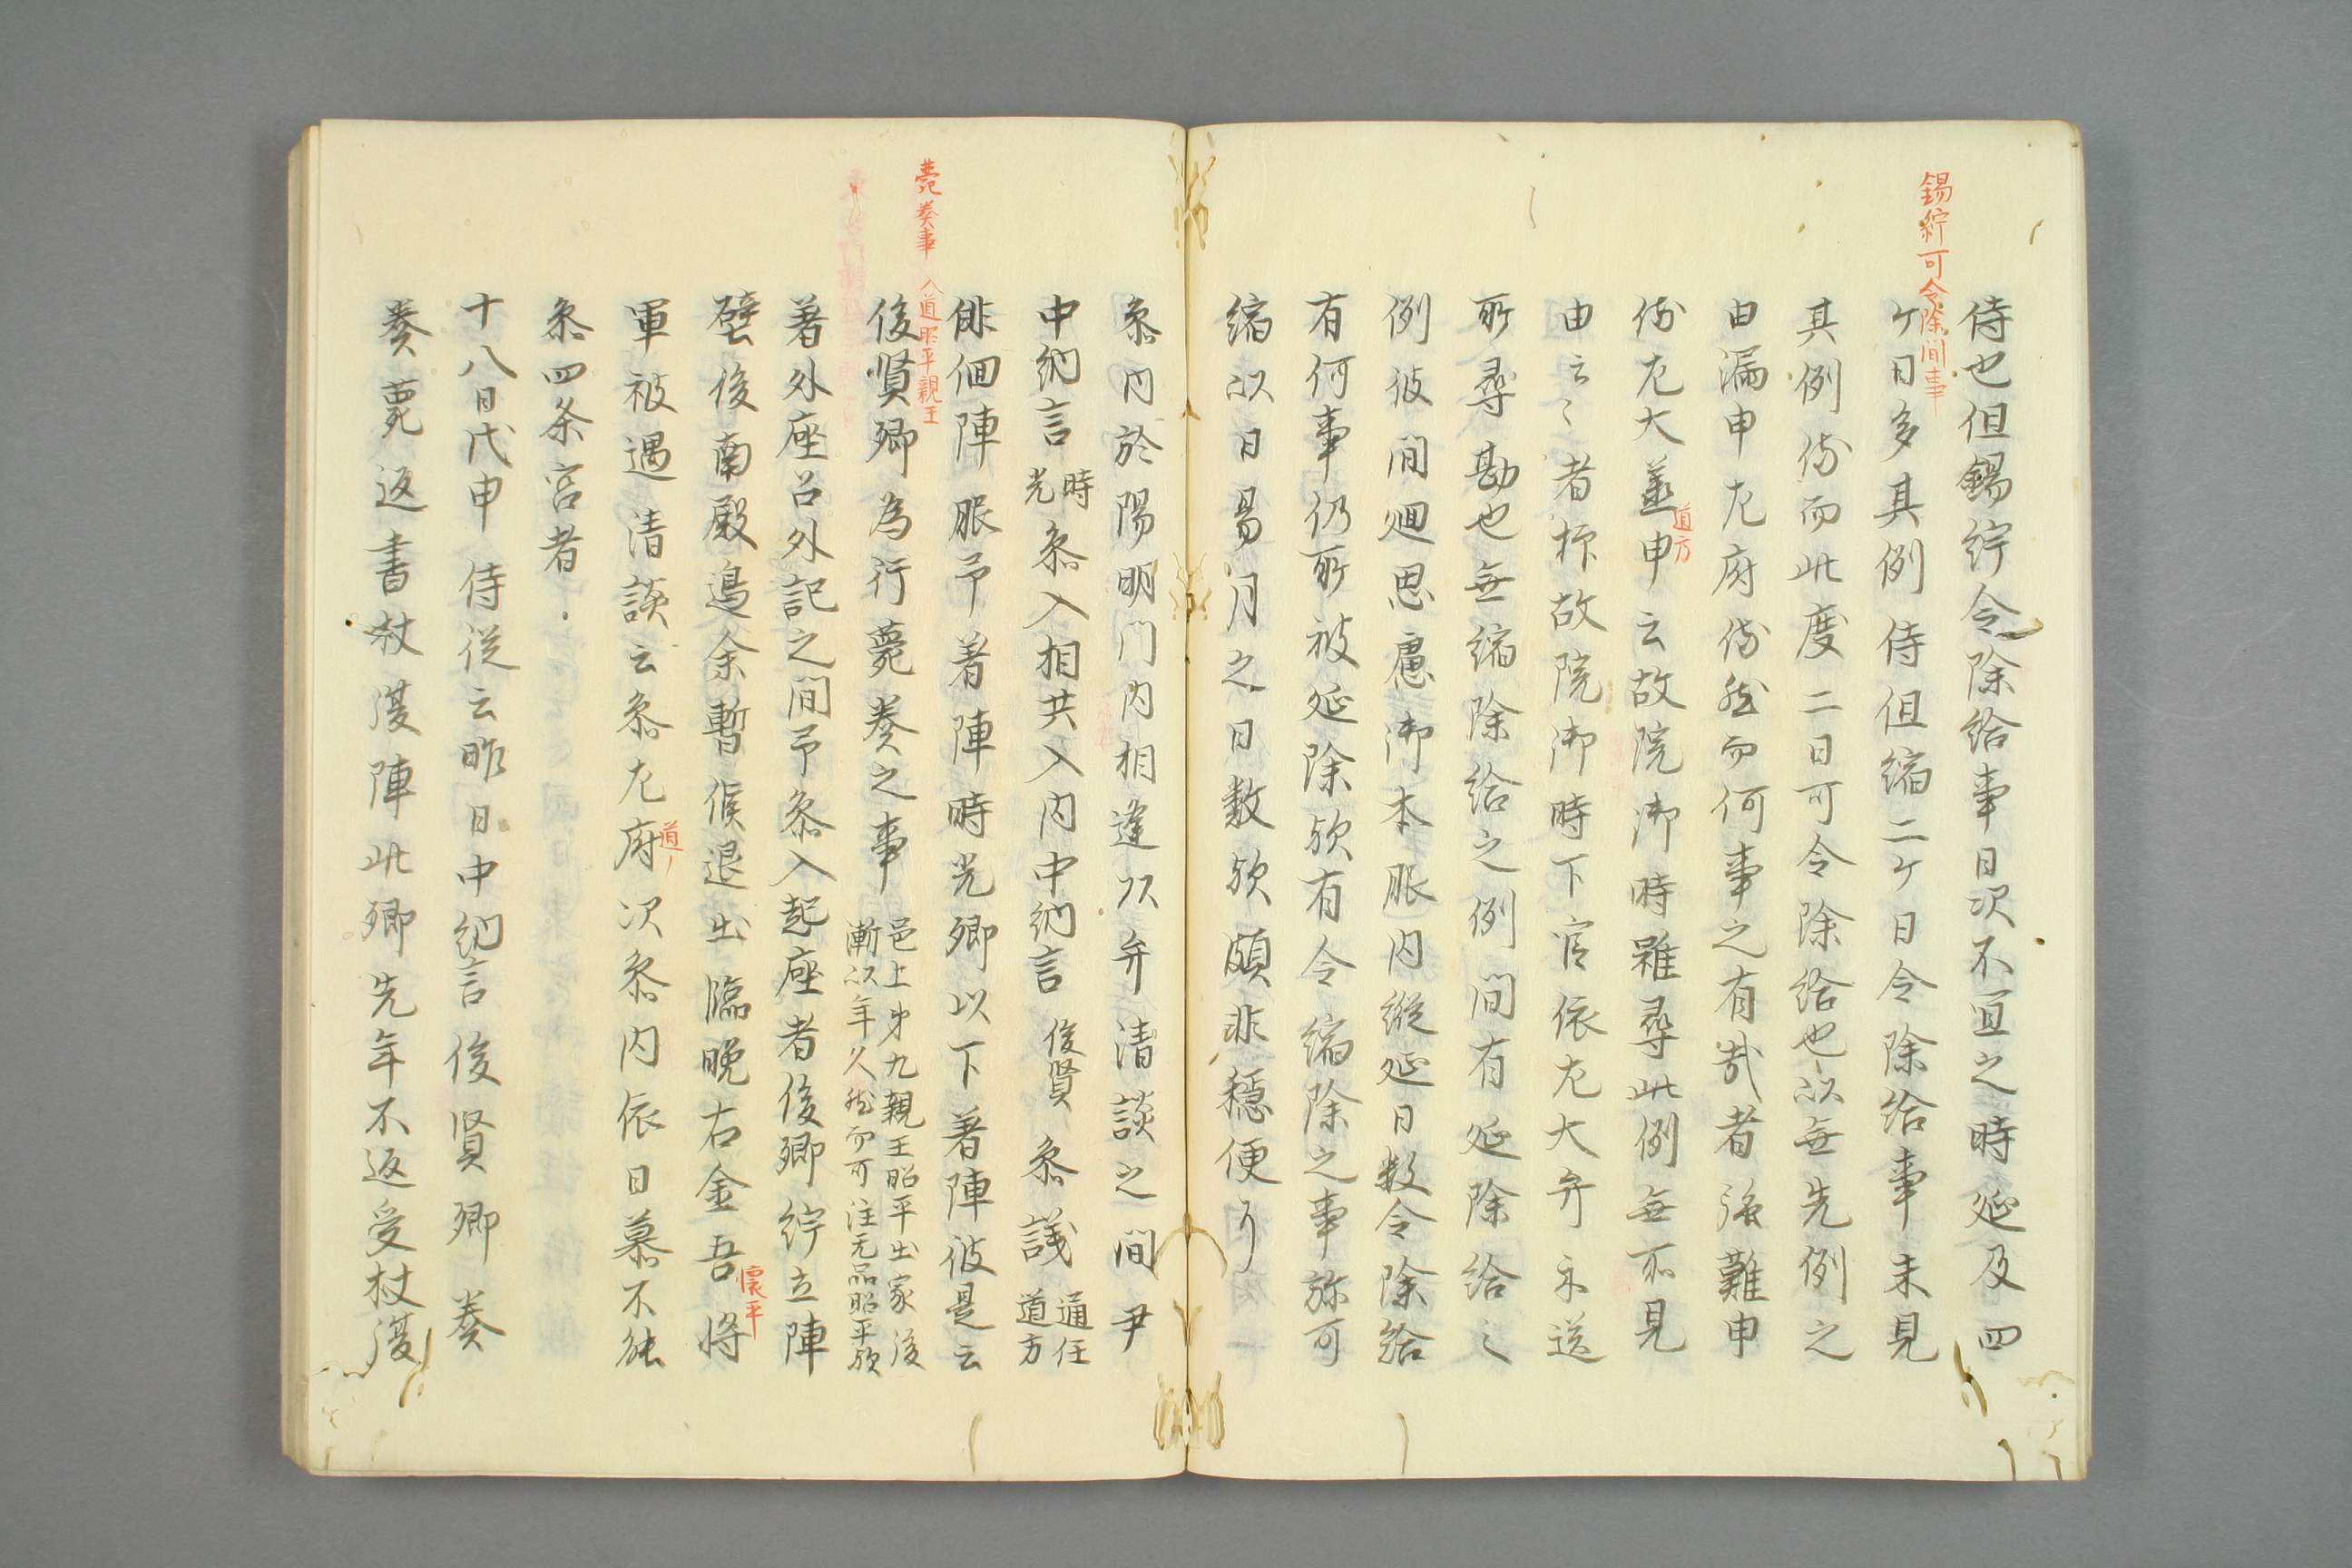 錫紵可令除間事
侍也但錫紵令除給事日次不宜之時延及四
ケ日多其例侍但縮二ケ日令除給事未見
其例侍而此度二日可令除給也以無先例之
由漏申左府侍然而何事之有哉者強難申
侍左大并申云故院御時雖尋此例無所見
道方
由云〻者抑故院御時下官依左大弁示送
所尋勘也無縮除給之例間有延除給之
例彼間廻思慮御本服内縱延日数令除給
有何事仍所被延除欤有令縮除之事弥可
縮以日易月之日数欤頗非穏便り
参内於陽明門内相逢以弁清談之間尹
中納言時光参入相共入内中納言俊賢参議通任道方
薨奏事 入道昭平親王
俳佪陣腋予著陣時光卿以下著陣彼是云
俊賢卿為行薨奏之事邑上第九親王昭平出家後漸以年久然而可注无品昭平欤
著外座召外記之間予参入起座者俊卿紵立陣
壁後南殿邊余暫候退出臨晩右金吾将
懐平
軍被過清談云参左府次参内依日暮不能
道〻
参四条宮者
十八日戊申侍従云昨日中納言俊賢卿奏
奏薨返書杖復陣此卿先年不返受杖復